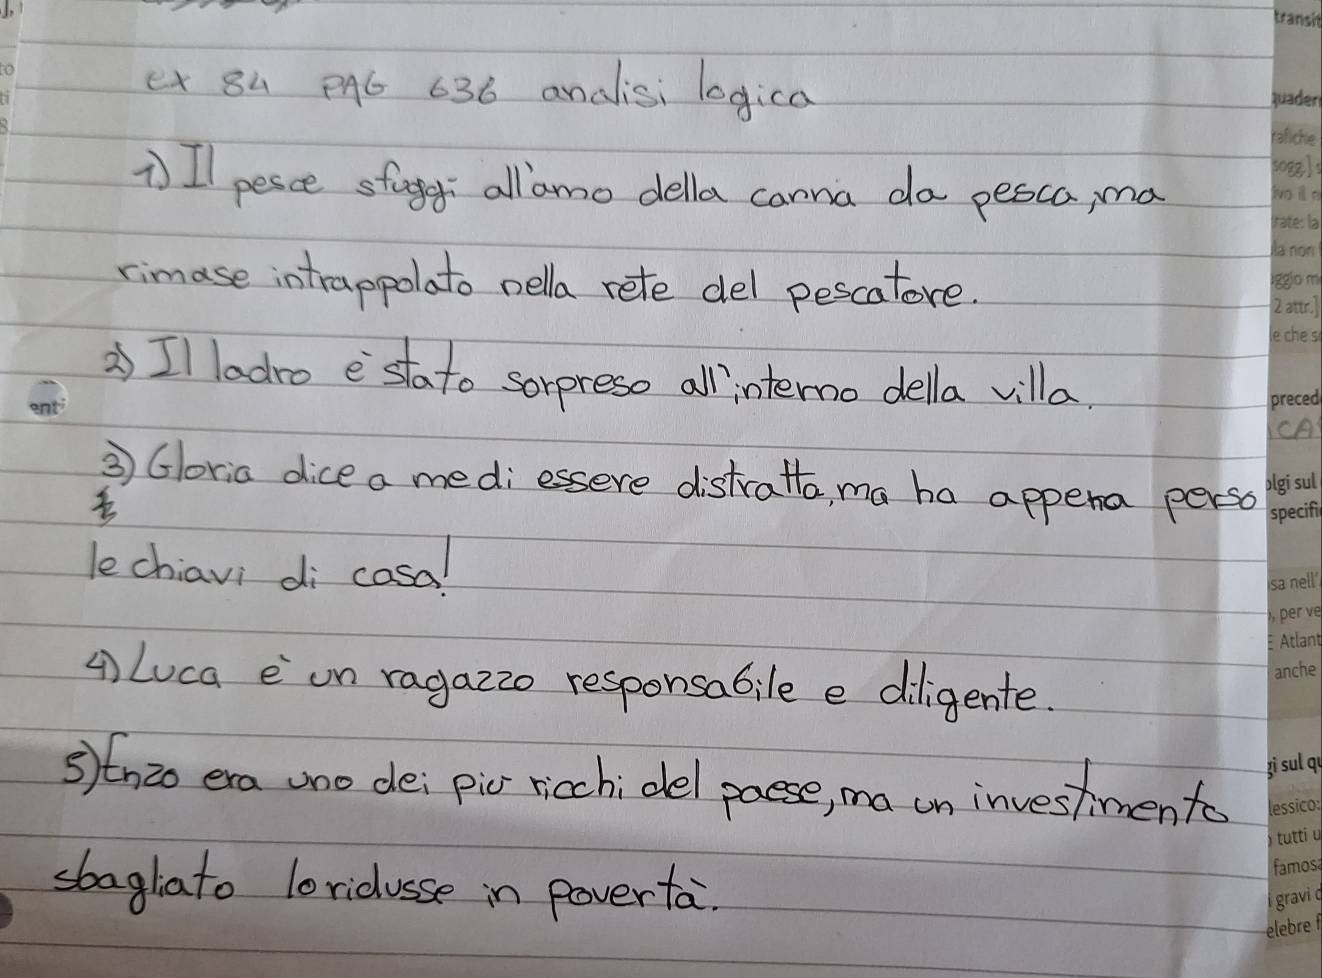 ex 84 PAG 636 analisi logica
1) Il pesce sfuggi all'amo della canna da pesca, ma
rimase intrappolato nella rete del pescatore.
2) Il ladro è stato sorpreso all'interno della villa.
3) Gloria dice a me di essere distratta, ma ha appena perso
le chiavi di casa!
4) Luca è un ragazzo responsabile e diligente.
5) Enzo era uno dei più ricchi del paese, ma un investimento
sbagliato lo ridusse in povertà.
transit
quader
rafiche
sogg]
rate: la
la non
2 attr.]
e che s
preced
CA
olgi sul
specifi
sa nell'
, per ve
E Atlant
anche
gi sul qu
lessico:
tutti u
famosa
i gravi d
elebre f
enti